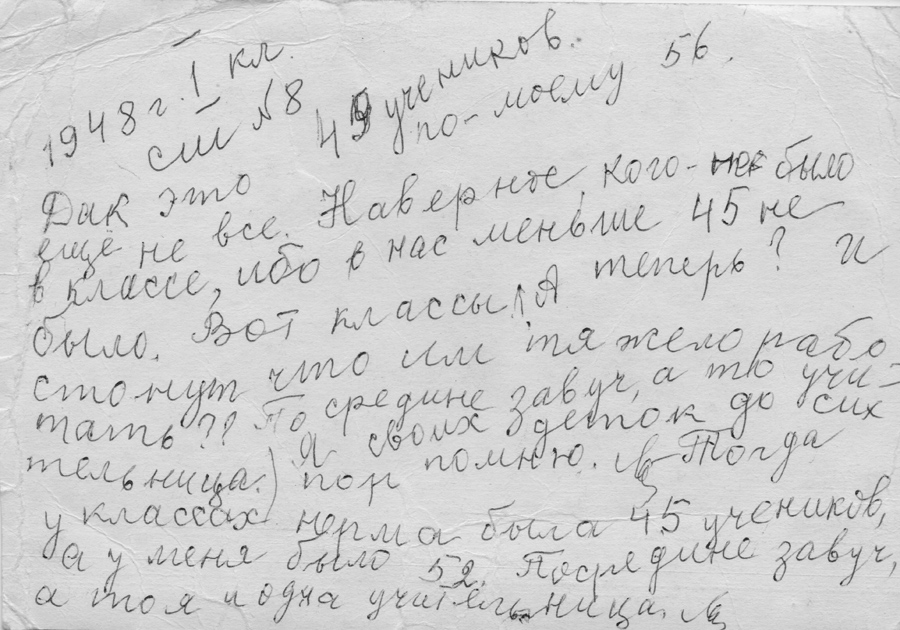 1948 г. 1 кл.
СШ №8 49 учеников.
по-моему 56.
Дак это
ещё не все. Наверное, кого- не было
в классе, ибо в нас меньше 45 не
было. Вот классы! А теперь? И
стонут что им тяжело рабо
тать?? По средине завуч, а то учи-
тельница.) Я своих деток до сих
пор помню. Тогда
у классах норма была 45 учеников,
а у меня было 52. Посредине завуч,
а то я и одна учительница.